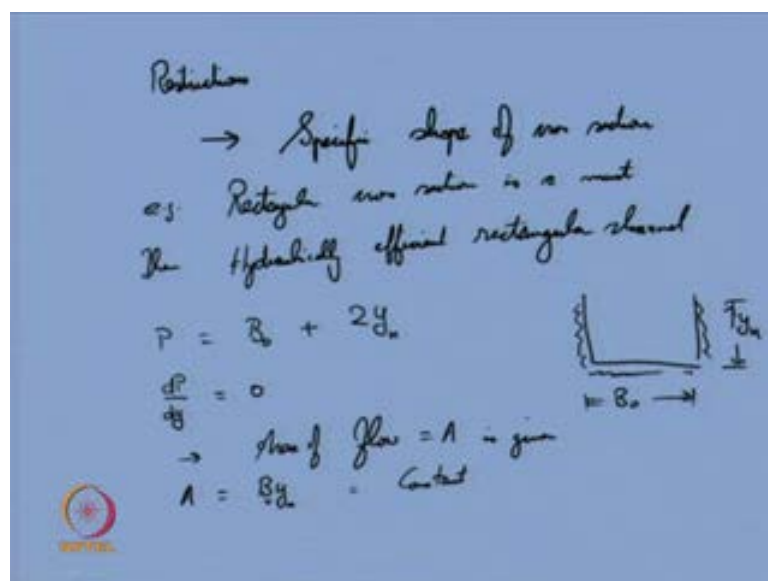 Restrictions
→ Specific shape of cross section
e.g. Rectangular cross section is a must
Then Hydraulically efficient rectangular channel
P = B₀ + 2yₙ
dP/dy = 0
yₙ
B₀
→ Area of flow = A is given
A = B₀yₙ = Constant
NPTEL